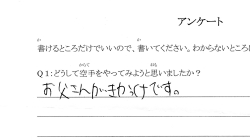 アンケート
書けるところだけでいいので、書いてください。わからないところに
Q1:どうして空手をやってみようと思いましたか?
お父さんがきっかけです。